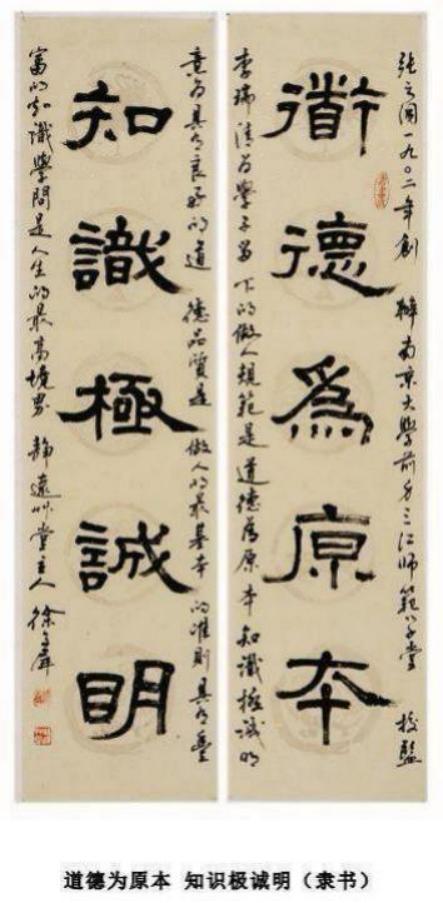 张之洞一九〇二年創辦南京大學前身三江師範学堂 校監
衜德為原本
李瑞清为學子留下的做人規範是道德為原本知識極誠明
意为具有良好的道德品質是做人的最基本的准则具有豐
知識極誠明
富的知識學問是人生的最高境界 静遠艸堂主人 徐
道德为原本 知识极诚明（隶书）